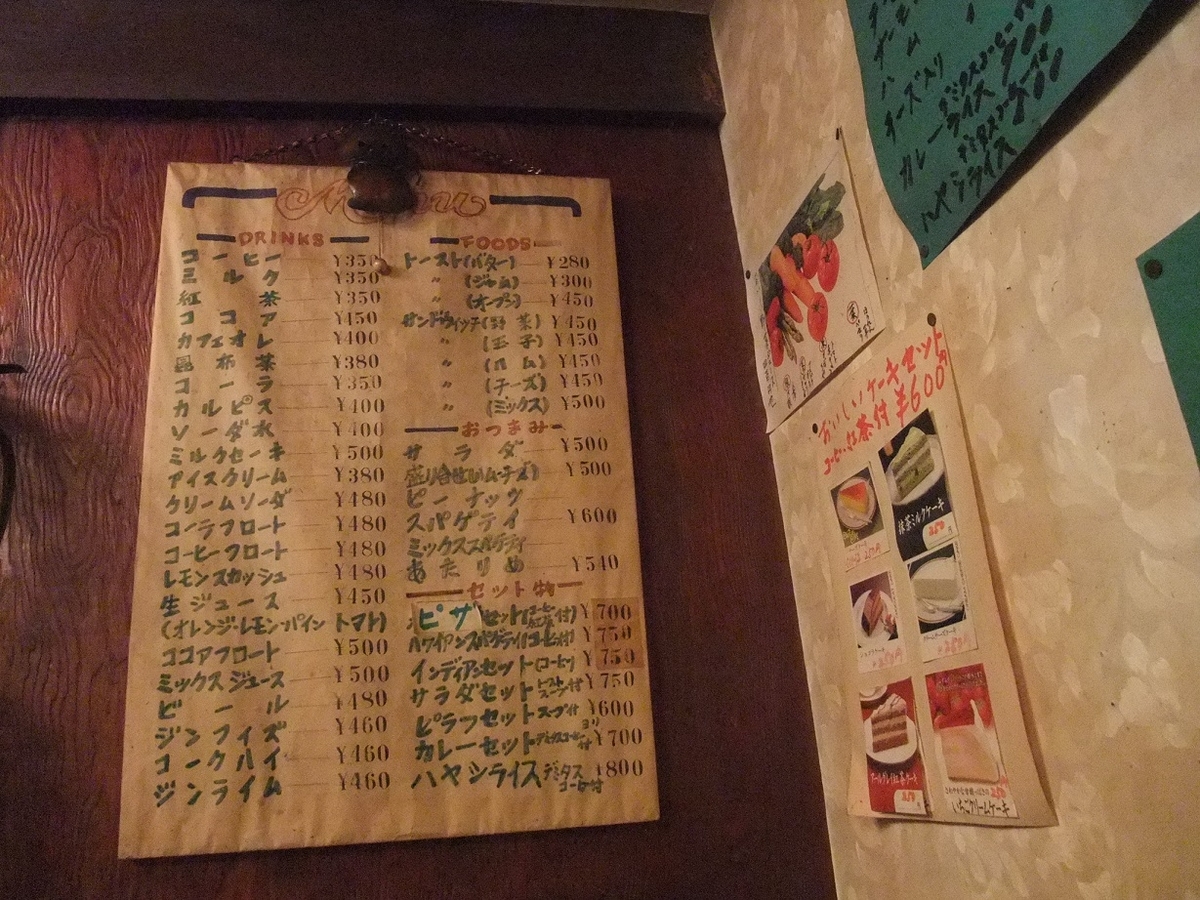 Menu
DRINKS
コーヒー ¥350
ミルク ¥350
紅茶 ¥350
ココア ¥450
カフェオレ ¥400
昆布茶 ¥380
コーラ ¥350
カルピス ¥400
ソーダ水 ¥400
ミルクセーキ ¥500
アイスクリーム ¥380
クリームソーダ ¥480
コーラフロート ¥480
コーヒーフロート ¥480
レモンスカッシュ ¥480
生ジュース ¥450
(オレンジ・レモン・パイン トマト)
ココアフロート ¥500
ミックスジュース ¥500
ビール ¥480
ジンフィズ ¥460
コークハイ ¥460
ジンライム ¥460
FOODS
トースト(バター) ¥280
〃 (ジャム) ¥300
〃 (オープン) ¥450
サンドウィッチ(野菜) ¥450
〃 (玉子) ¥450
〃 (ハム) ¥450
〃 (チーズ) ¥450
〃 (ミックス) ¥500
おつまみ
サラダ ¥500
盛り合せ(ハムチーズ) ¥500
ピーナッツ
スパゲティ ¥600
ミックススパゲティ
あたりめ ¥540
セット物
ピザセット(コーヒー紅茶付) ¥700
ハワイアンスパゲティ(コーヒー付) ¥750
インディアンセット(コーヒー) ¥750
サラダセット トーストスープ付 ¥750
ピラフセット スープ付 ¥600
カレーセット デミタスコーヒー付 ¥700
ハヤシライス デミタスコーヒー付 ¥800
ハム
チーズ入り
デミタスコーヒー付
カレーライス 700
デミタスコーヒー付
ハヤシライス 800
おいしいケーキセット
コーヒー、紅茶付 ¥600
抹茶ミルクケーキ
250円
アールグレイ紅茶ケーキ
いちごクリームケーキ